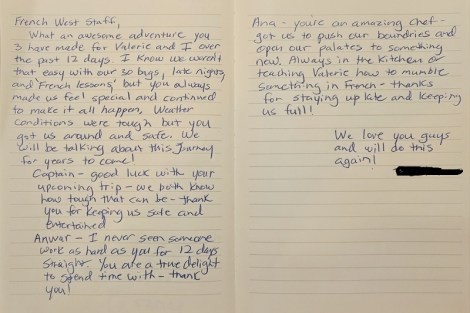 French West Staff,
What an awesome adventure you
3 have made for Valerie and I over
the past 12 days. I know we weren't
that easy with our 30 bags, late nights,
and 'French lessons' but you always
made us feel special and continued
to make it all happen. Weather
Conditions were tough but you
got us around and safe. We
will be talking about this Journey
for years to come!
Captain - good luck with your
upcoming trip - we both know
how tough that can be - thank
you for keeping us safe and
Entertained
Anwar - I never seen someone
work as hard as you for 12 days
straight. You are a true delight
to spend time with - thank
you!
Ana - you're an amazing chef -
got us to push our boundries and
open our palates to something
new. Always in the kitchen or
teaching Valerie how to mumble
something in French - thanks
for staying up late and keeping
us full!
We love you guys
and will do this
again!